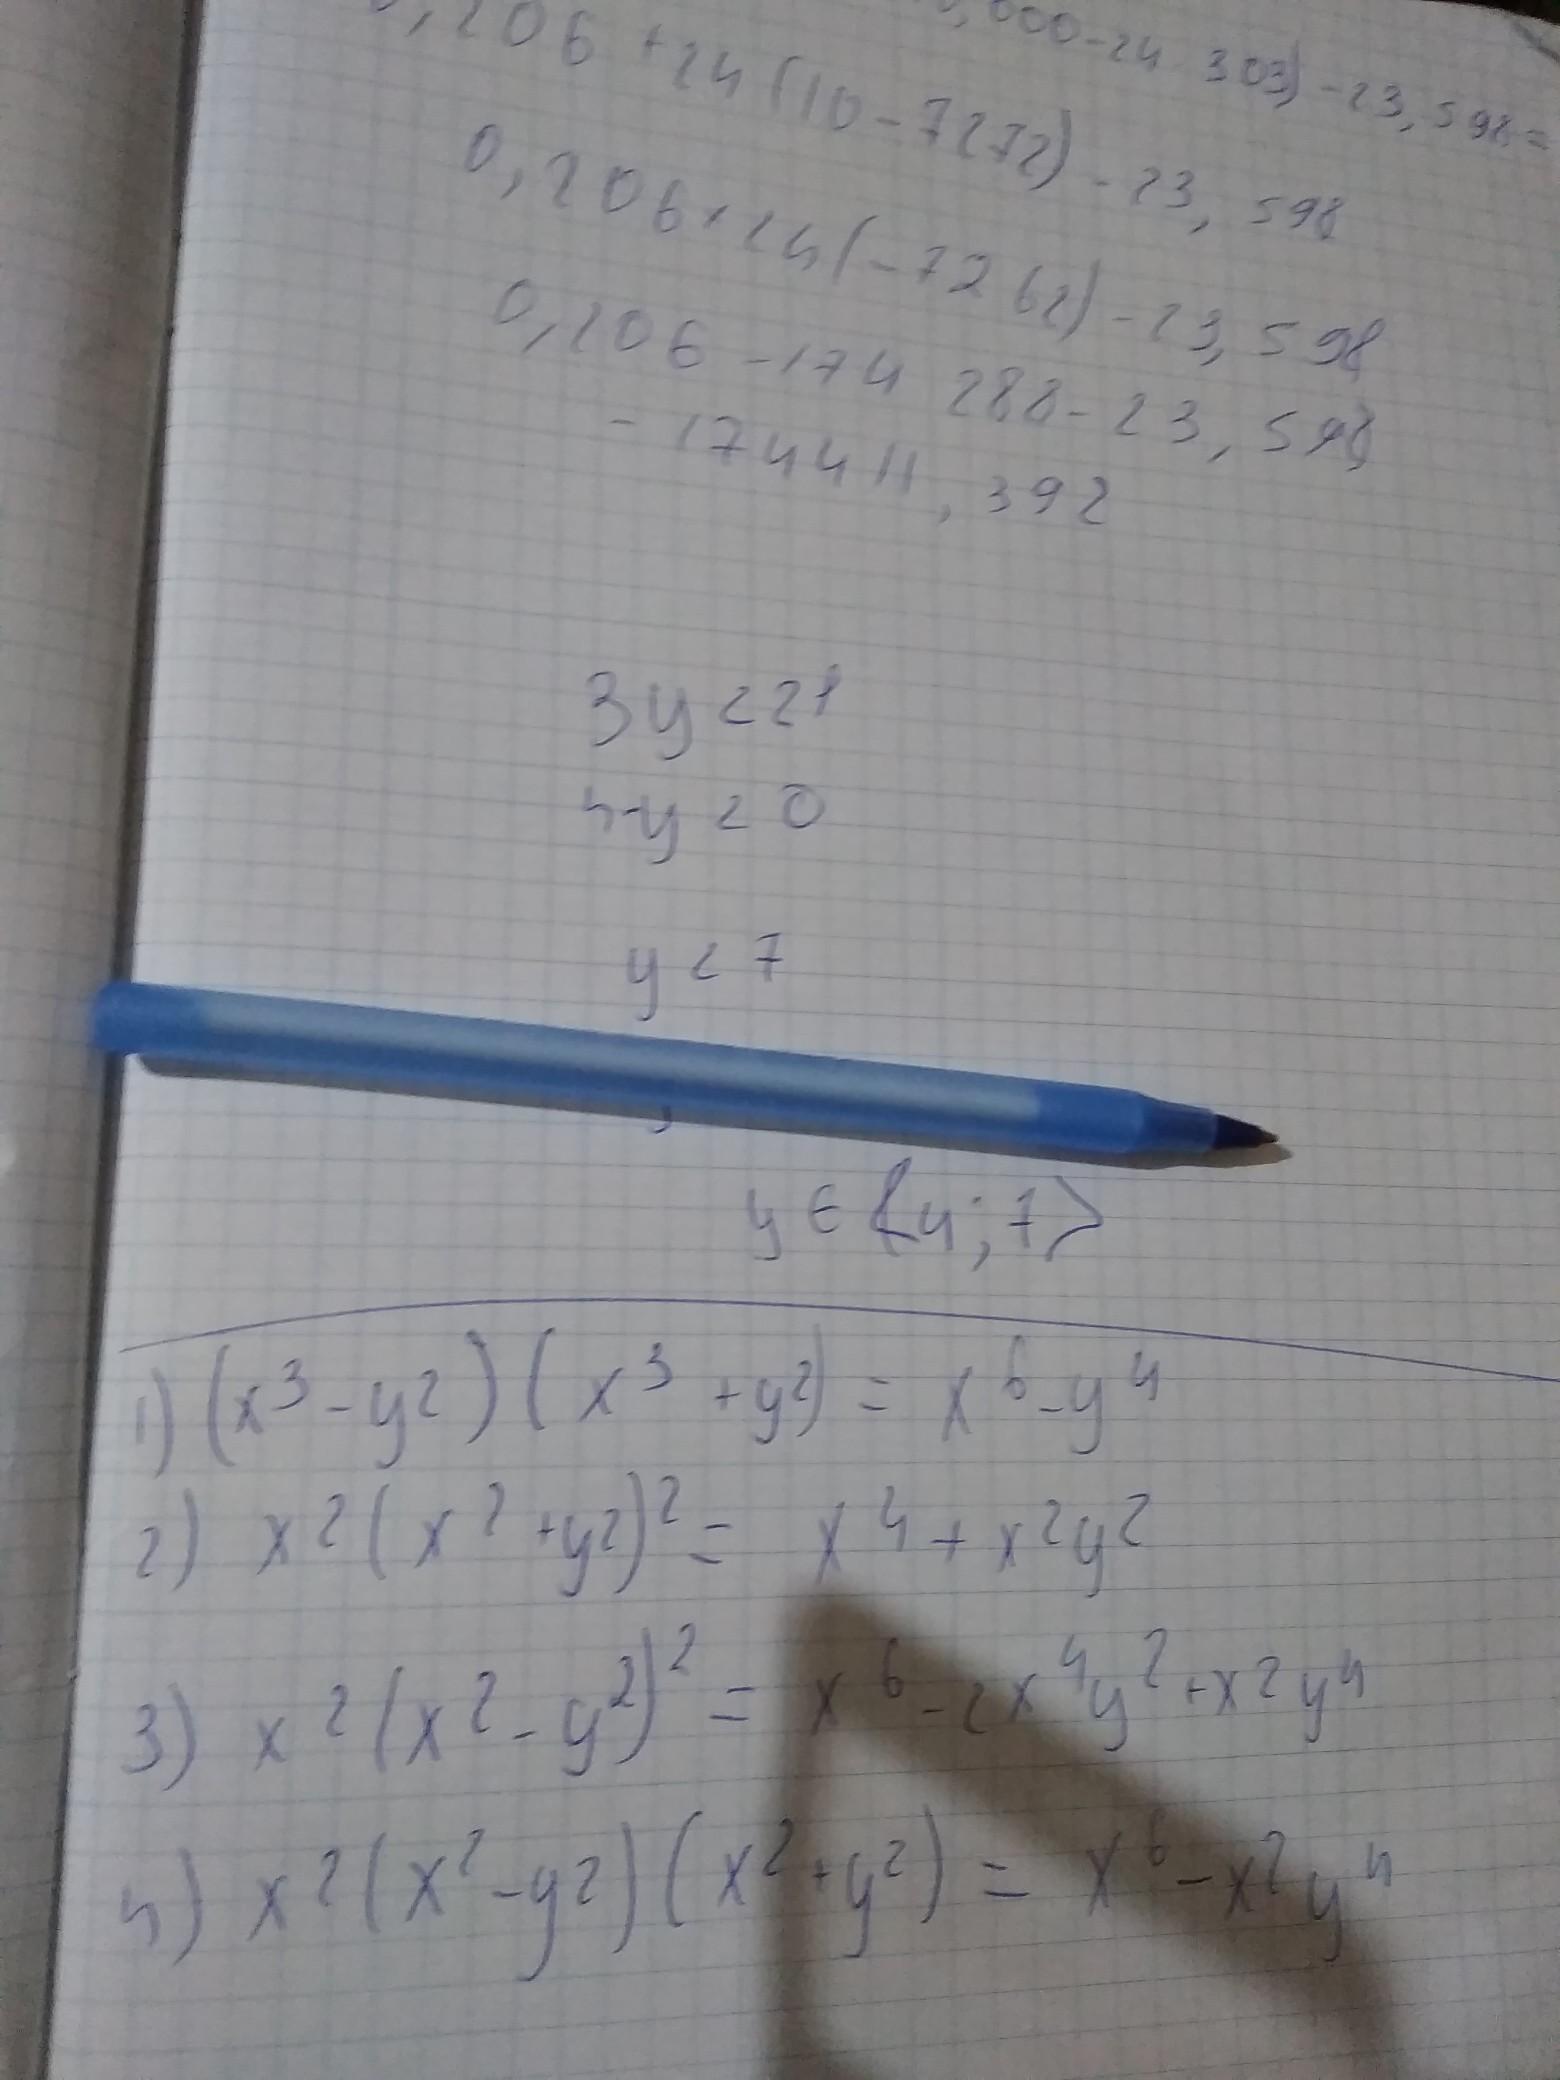 ,000-24 303)-23,598=
0,206+24(10-7272)-23,598
0,206+24(-7262)-23,598
0,206-174 288-23,598
-174411,392
3y<21
4-y<0
y<7
y∈{4;7>
1) (x³-y²)(x³+y²)=x⁶-y⁴
2) x²(x²+y²)²=x⁴+x²y²
3) x²(x²-y²)²=x⁶-2x⁴y²+x²y⁴
4) x²(x²-y²)(x²+y²)=x⁶-x²y⁴